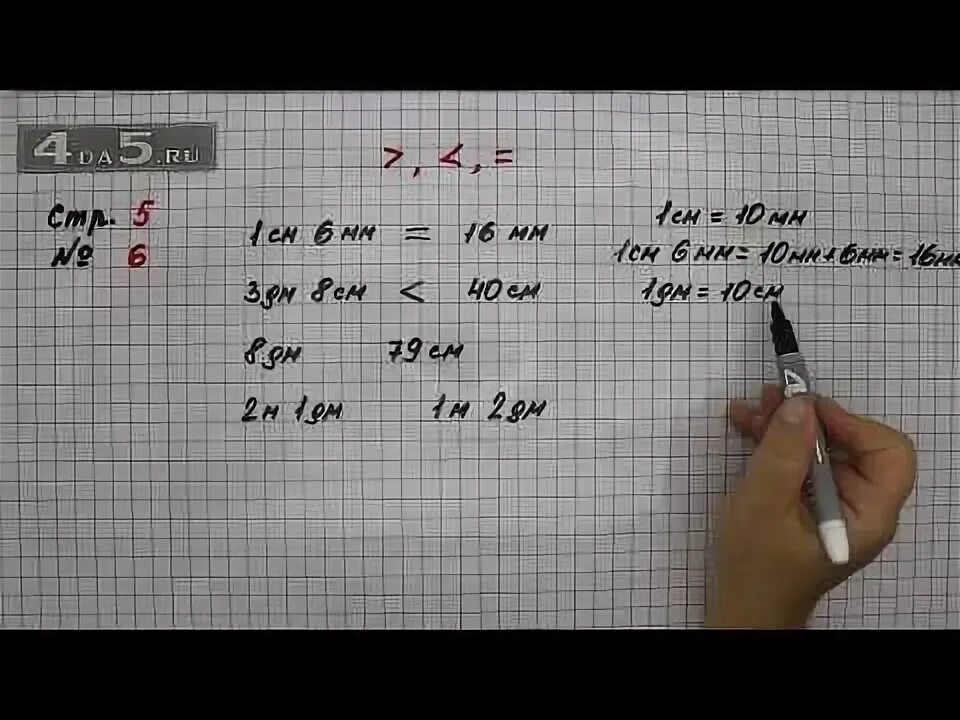 4DA5.RU
>, <, =
Стр. 5
№ 6
1см 6мм = 16мм
3дм 8см < 40см
8дм 79см
2м 1дм 1м 2дм
1см = 10мм
1см 6мм = 10мм+6мм = 16мм
1дм = 10см